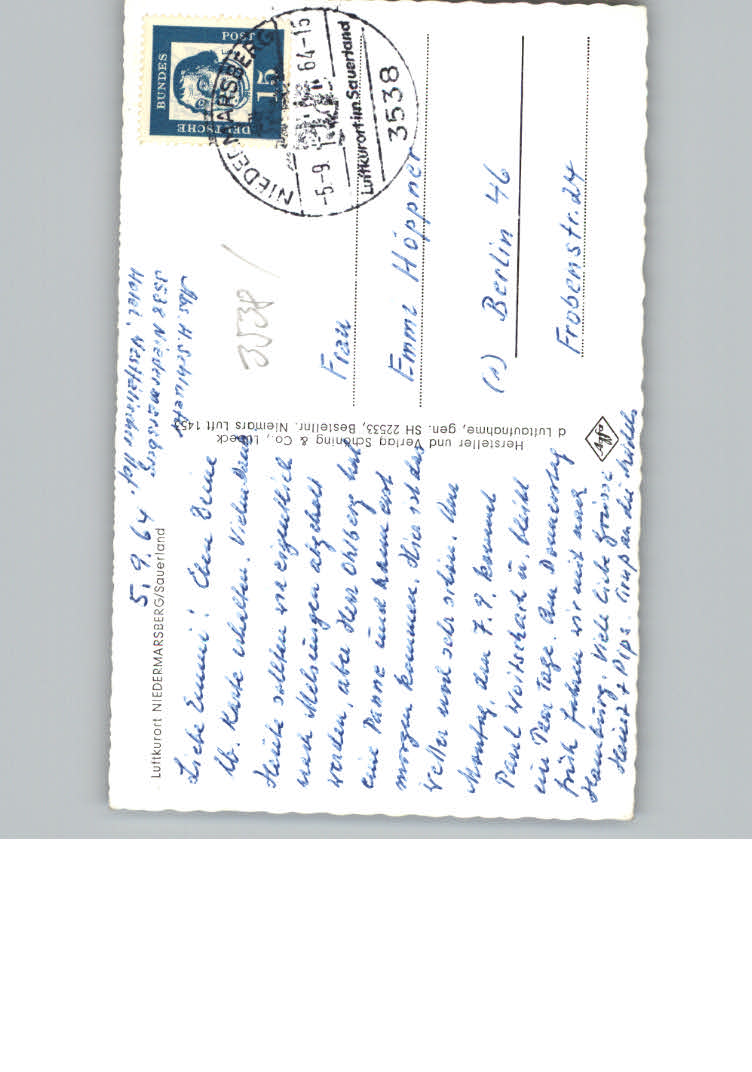 Luftkurort NIEDERMARSBERG/Sauerland
5.9.64.
Liebe Emmi! Eben Deine
lb. Karte erhalten. Vielen Dank
Heute sollten wir eigentlich
nach Melsungen abgeholt
werden, aber Herr Ohlberg hat
eine Panne und kann erst
morgen kommen. Hier ist das
Wetter noch sehr schön. Am
Montag, den 7.9. kommt
Paul Woitschach u. bleibt
ein paar Tage. Am Donnerstag
früh fahren wir mit nach
Hamburg. Viele liebe Grüsse
Heinz + Pips. Gruß an die
Hersteller und Verlag Schöning & Co., Lübeck
d Luftaufnahme, gen. SH 22533, Bestellnr. Niemars Luft 1453
Agfa
Abs. H.
3538 Niedermarsberg
Hotel, Westfälischer Hof
DEUTSCHE
BUNDES
POST
15
NIEDERMARSBERG
-5.-9. 64-15
Luftkurort im Sauerland
3538
3538
Frau
Emmi Höppner
(1) Berlin 46
Frobenstr. 24